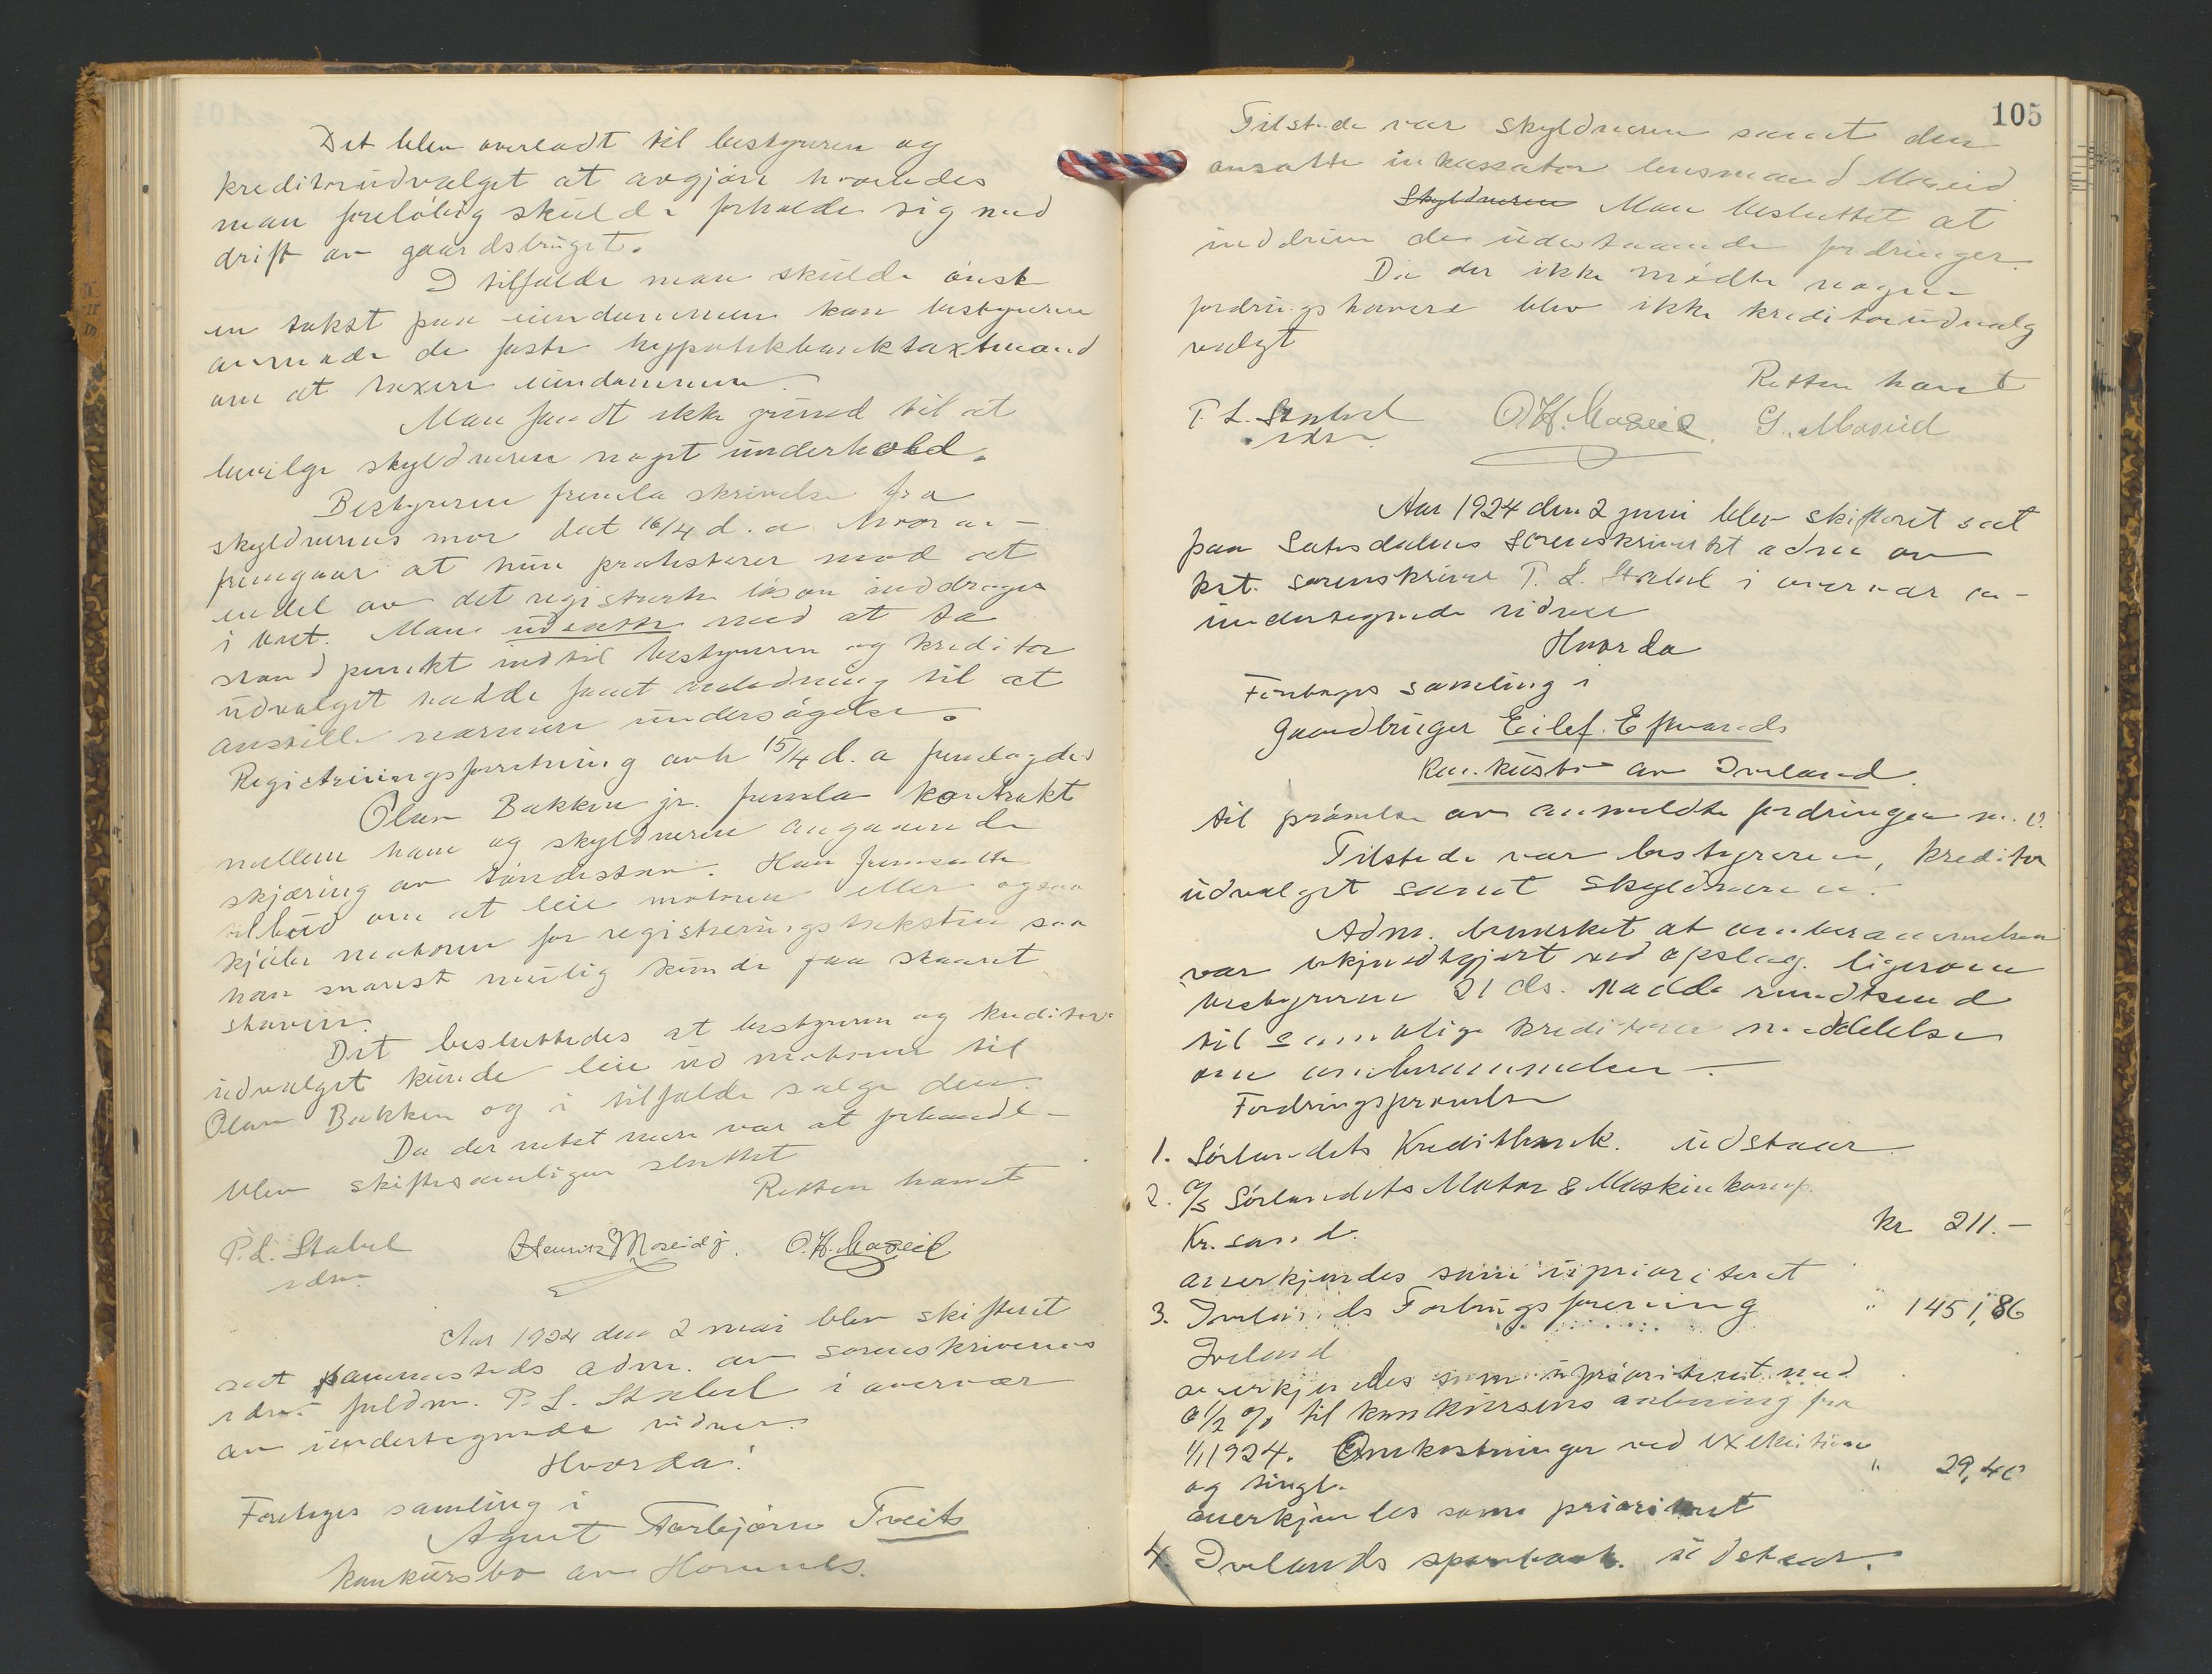 Det blev overladt til bestyreren og
kreditorudvalget at avgjøre hvorledes
man foreløbig skulde forholde sig med
drift av gaardsbruget.
I tilfælde man skulde ønske
en takst paa eiendommen kan bestyreren
anmode de faste hypotekbanktaxtmænd
om at taxere eiendommen.
Man fandt ikke grund til at
bevilge skyldneren noget underhold.
Bestyreren fremla skrivelse fra
skyldnerens mor dat 16/4 d.a. hvorav
fremgaar at hun protesterer mod at
endel av det registrerte løsøre inddrages
i boet. Man utsatte med at ta
standpunkt indtil bestyreren og kreditor
udvalget hadde faaet anledning til at
anstille nærmere undersøgelse.
Registreringsforretning avh 15/4 d.a fremlagdes
Olav Bakken jr. fremla kontrakt
mellem ham og skyldneren angaaende
skjæring av tøndestav. Han fremsatte
tilbud om at leie motoren eller ogsaa
kjøbe motoren for registreringstaksten saa
han snarest mulig kunde faa skaaret
staven.
Det besluttedes at bestyreren og kreditor-
udvalget kunde leie ud motoren til
Olav Bakken og i tilfælde sælge den.
Da der intet mere var at forhandle
blev skiftesamligen sluttet
Retten hævet
P.L. Stabel Henrik Moseid j. O.H. Moseid
edsv.
Aar 1924 den 2 mai blev skifteret
sat sammesteds adm. av sorenskriverens
edsv. fuldm. P. L. Stabel i overvær
av undertegnede vidner.
Hvorda:
Foretoges samling i
Agent Torbjørn Tveits
konkursbo av Hornnes.
105
Tilstede var skyldneren samt den
ansatte inkassator lensmand Moseid
Skyldneren Man besluttet at
inddrive de udestaaende fordringer.
Da der ikke mødte nogen
fordringshavere blev ikke kreditorudvalg
valgt
Retten hævet
P. L. Stabel O.H. Moseid. G. Moseid
edsv
Aar 1924 den 2 juni blev skifteret sat
paa Sætesdalens sorenskriverkt adm av
kst. sorenskriver P. L. Stabel i overvær av
undertegnede vidner
Hvorda
Foretoges samling i
gaardbruger Eilef Eftevands
konkursbo av Iveland.
til prøvelse av anmeldte fordringer m. v.
Tilstede var bestyreren, kreditor
udvalget samt skyldneren.
Adm. bemerket at anberammelsen
var bekjendtgjort ved opslag. ligesom
bestyreren 21 ds. hadde rundtsend
til samtlige kreditorer meddelelse
om anberammelsen —
Fordringsprøvelse
1. Sørlandets Kreditbank. udstaar
2. A/S Sørlandets Motor & Maskinkomp.
Kr.sand. kr 211.-
anerkjendes som uprioriteret
3. Ivelands Forbrugsforening " 1451,86
Iveland
anerkjendes som uprioriteret med
6 1/2 % til konkursens aabning fra
1/1 1924. Omkostninger ved exekution
og tingl. " 29,40
anerkjendes som prioriteret
4. Ivelands sparebank. udstaar.